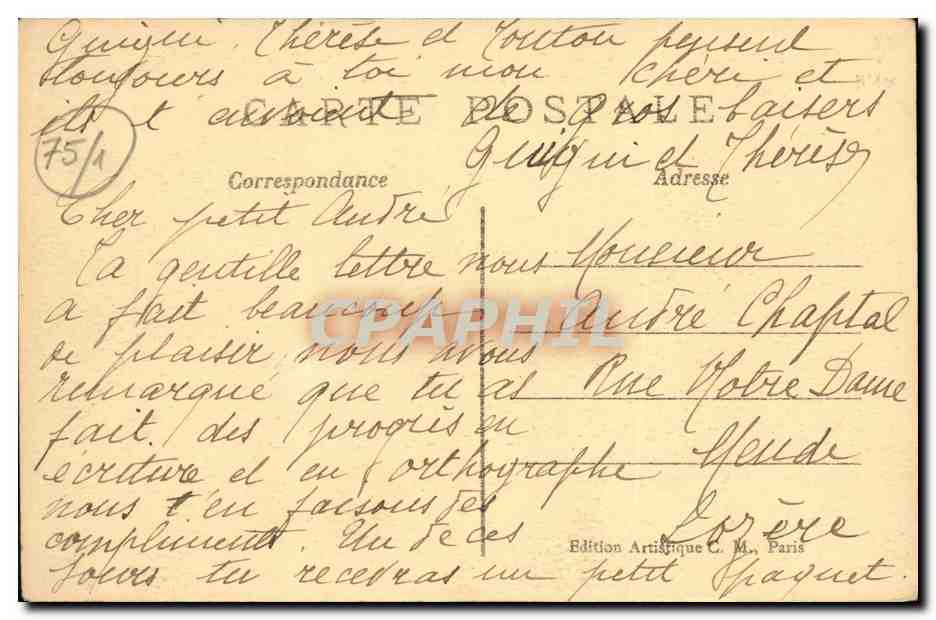 Guigui, Thérèse et Tonton pensent
toujours à toi mon chéri et
ils t'envoient de gros baisers
CARTE POSTALE
Guigui et Thérèse
75/1
Correspondance
Adresse
Cher petit André
Ta gentille lettre nous
a fait beaucoup
de plaisir, nous avons
remarqué que tu as
fait des progrès en
écriture et en orthographe
nous t'en faisons des
compliments. Un de ces
jours tu recevras un petit paquet.
Monsieur
André Chaptal
Rue Notre Dame
Mende
Lozère
Edition Artistique C. M., Paris
CPAPHIL